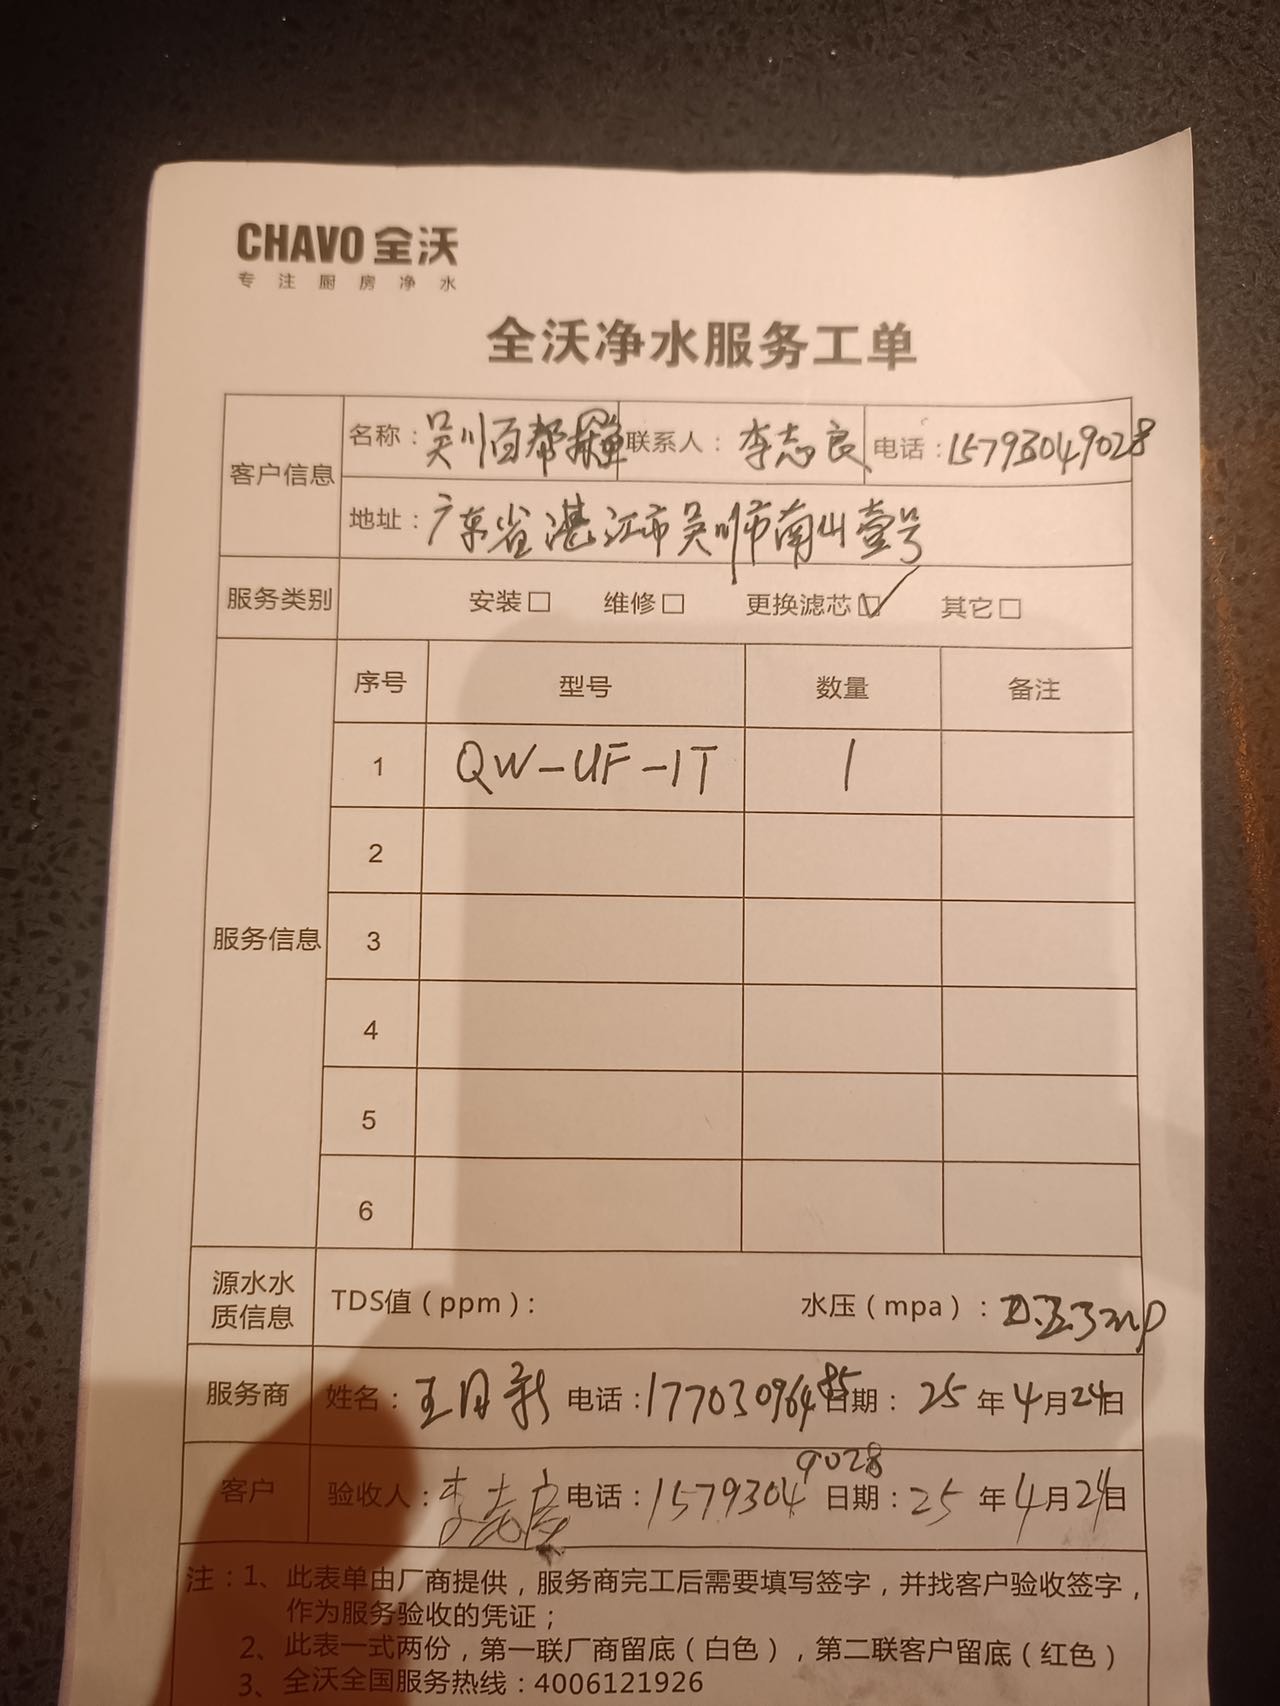 CHAVO 全沃
专注厨房净水
全沃净水服务工单
客户信息 名称：吴川百帮 联系人：李志良 电话：15793049028
地址：广东省湛江市吴川市南山壹号
服务类别 安装□ 维修□ 更换滤芯☑ 其它□
服务信息 序号 型号 数量 备注
1 QW-UF-1T 1
2
3
4
5
6
源水水质信息 TDS值（ppm）： 水压（mpa）：
服务商 姓名：王 电话：17703096485 日期：25年4月24日
客户 验收人：李志良 电话：15793049028 日期：25年4月24日
注：1、此表单由厂商提供，服务商完工后需要填写签字，并找客户验收签字，
作为服务验收的凭证；
2、此表一式两份，第一联厂商留底（白色），第二联客户留底（红色）
3、全沃全国服务热线：4006121926